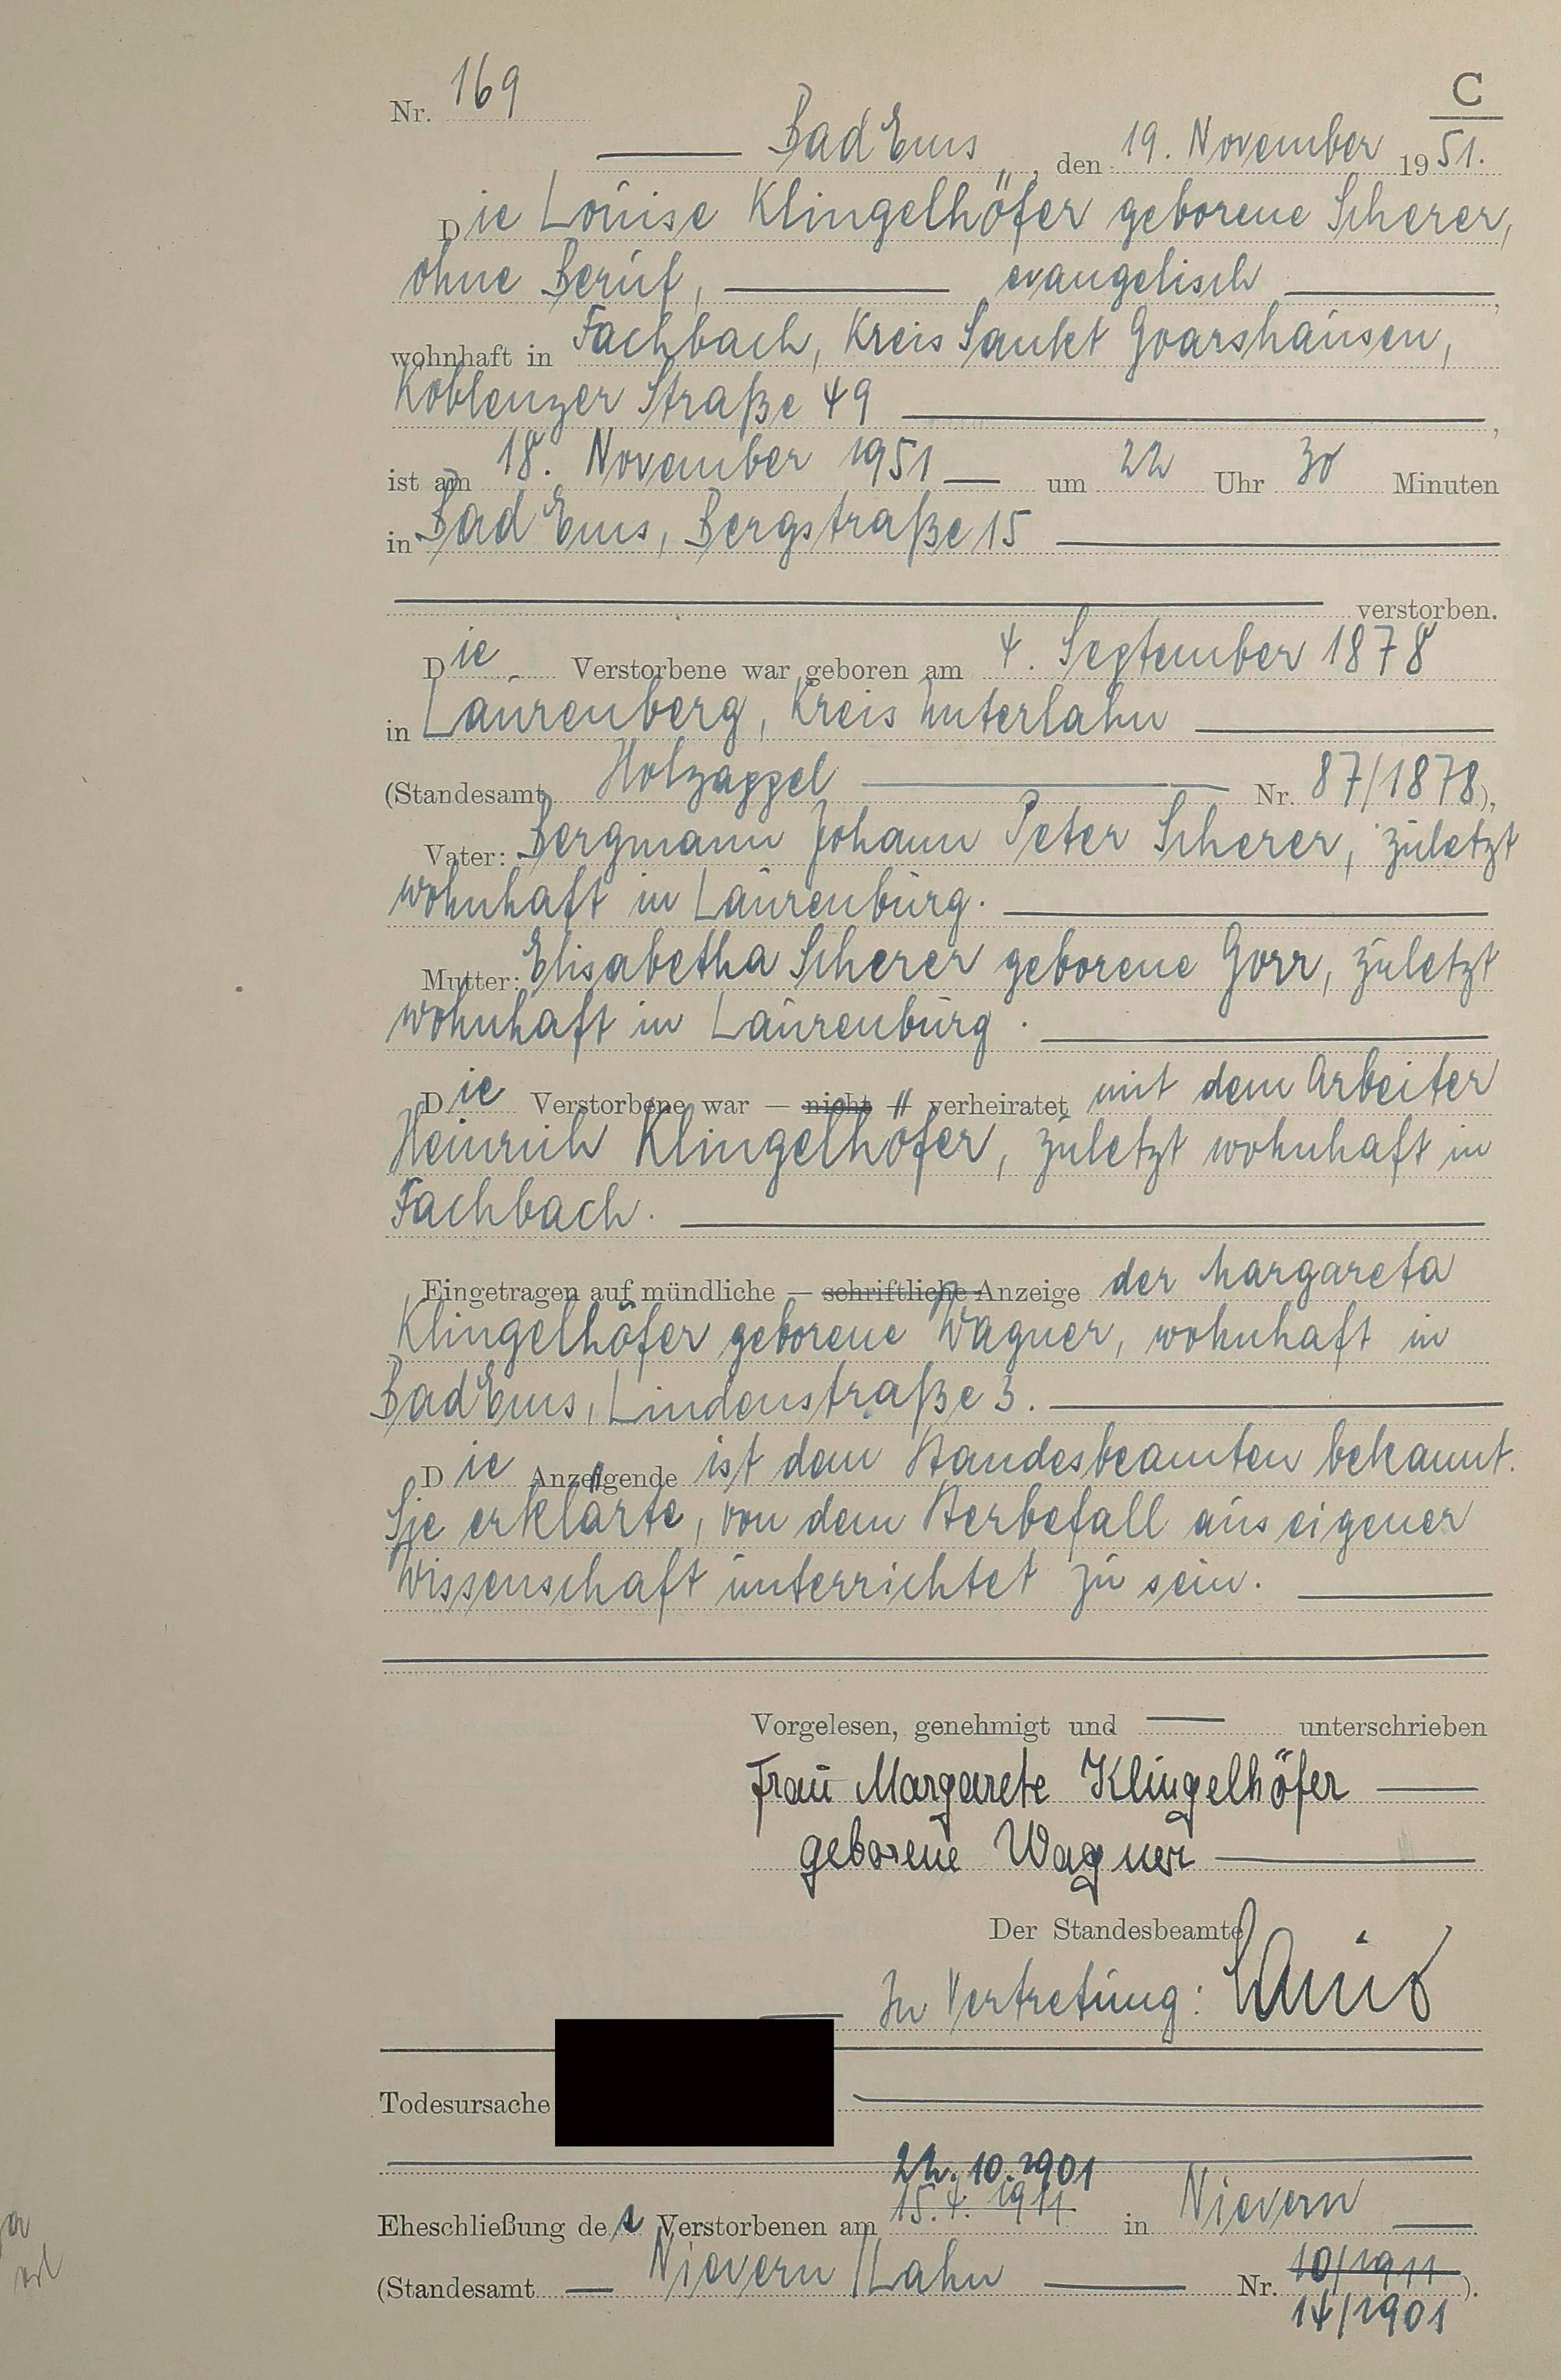 Nr. 169
C
Bad Ems, den 19. November 1951.
Die Louise Klingelhöfer geborene Scherer,
ohne Beruf, evangelisch,
wohnhaft in Fachbach, Kreis Sankt Goarshausen,
Koblenzer Straße 49,
ist am 18. November 1951 um 22 Uhr 30 Minuten
in Bad Ems, Bergstraße 15
verstorben.
Die Verstorbene war geboren am 4. September 1878
in Laurenberg, Kreis Unterlahn
(Standesamt Holzappel Nr. 87/1878),
Vater: Bergmann Johann Peter Scherer, zuletzt
wohnhaft in Laurenburg.
Mutter: Elisabetha Scherer geborene Gorr, zuletzt
wohnhaft in Laurenburg.
Die Verstorbene war — nicht — verheiratet mit dem Arbeiter
Heinrich Klingelhöfer, zuletzt wohnhaft in
Fachbach.
Eingetragen auf mündliche — schriftliche Anzeige der Margareta
Klingelhöfer geborene Wagner, wohnhaft in
Bad Ems, Lindenstraße 3.
Die Anzeigende ist dem Standesbeamten bekannt.
Sie erklärte, von dem Sterbefall aus eigener
Wissenschaft unterrichtet zu sein.
Vorgelesen, genehmigt und unterschrieben
Frau Margarete Klingelhöfer
geborene Wagner
Der Standesbeamte
In Vertretung:
Todesursache
22.10.1901
Eheschließung der Verstorbenen am 15.7.1911 in Nievern
(Standesamt Nievern/Lahn Nr. 10/1911).
14/1901